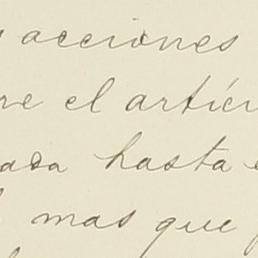 acciones
re el artícu
ada hasta
mas que